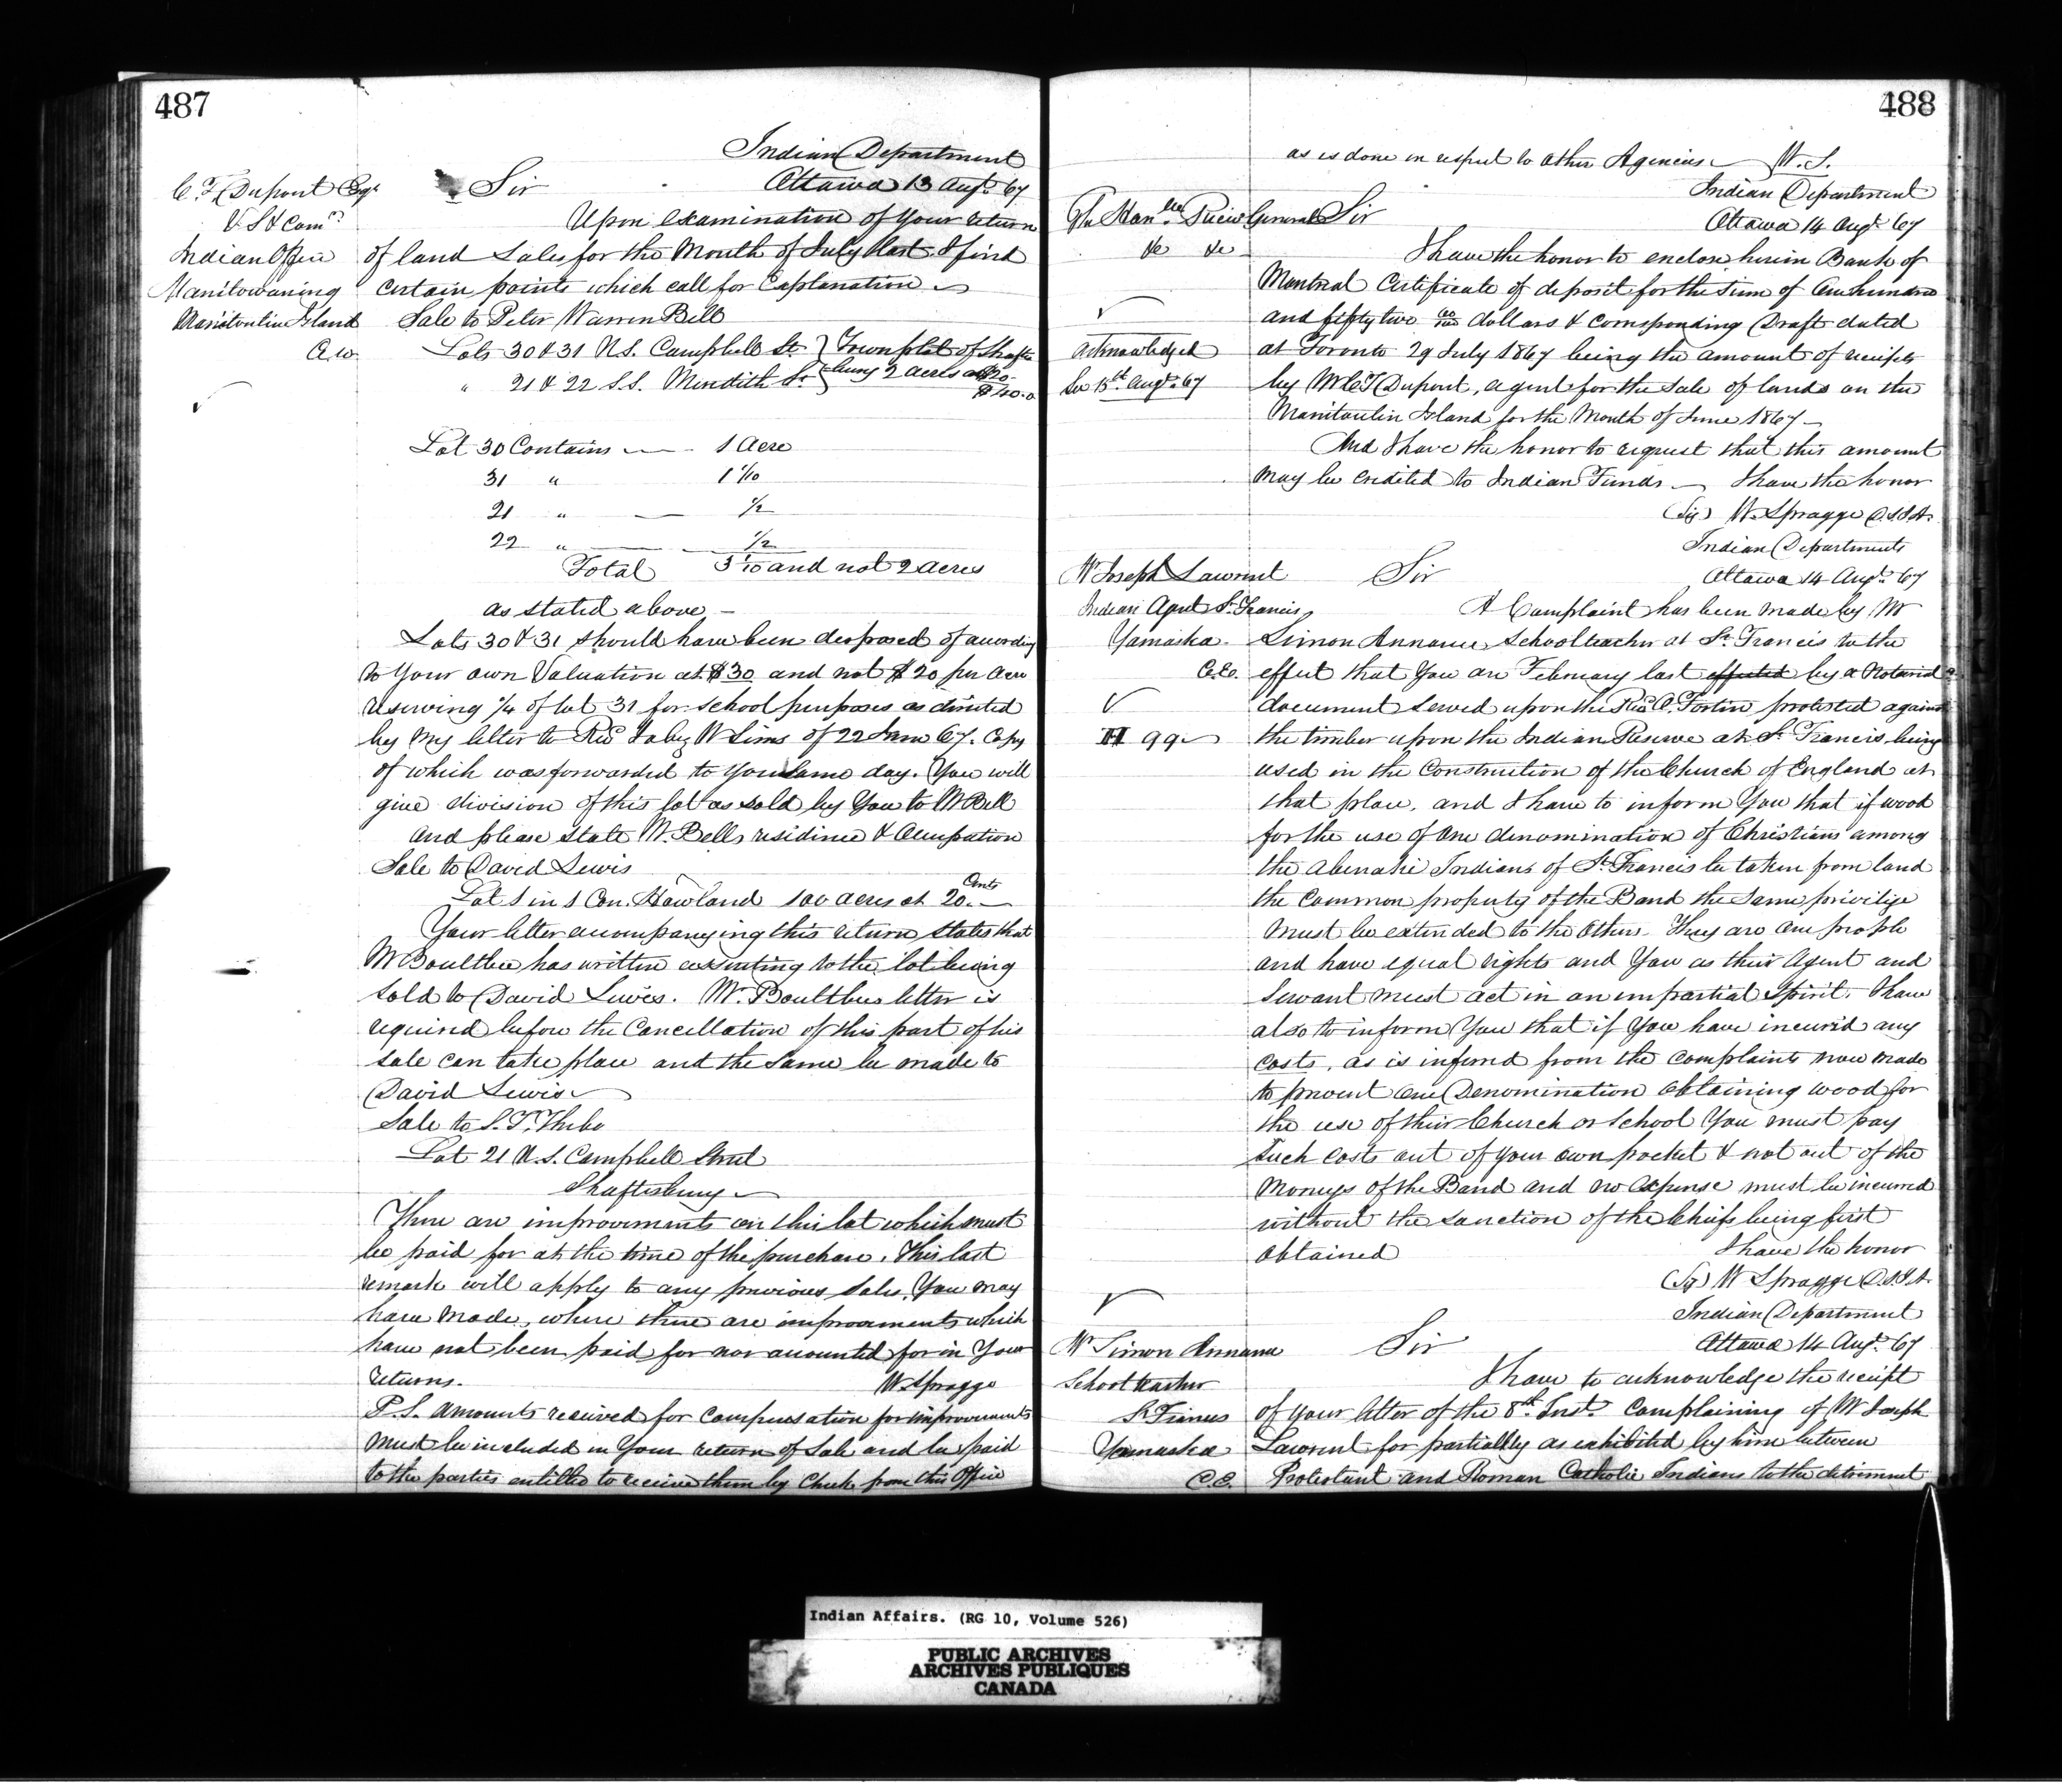 487
Indian Department
Ottawa 13 Augt. 67
C. T. Dupont Esqr
Sir
Upon examination of your return
Indian Office
of land Sales for the Month of July last I find
Manitowaning
certain points which call for Explanation
Manitoulin Island
Sale to Peter Warren Bell
C.W.
Lots 30 & 31 N.S. Campbell St. } Town plot of Shaftes
" 21 & 22 S.S. Meredith St. } bury 2 acres at $20.
$40.0
Lot 30 Contains — 1 Acre
31 " 1 1/10
21 " — 1/2
22 " — 1/2
Total 3 1/10 and not 2 acres
as stated above —
Lots 30 & 31 should have been disposed of according
to your own Valuation at $30 and not $20 per Acre
reserving 1/4 of lot 31 for school purposes as directed
by my letter to Revd Jabez W Sims of 22 June 67. Copy
of which was forwarded to you same day. You will
give division of this lot as sold by You to Mr Bell
and please state Mr. Bells residence & Occupation
Sale to David Lewis
Lot 1 in 1 Con. Howland 100 acres at 20 Cents
Your letter accompanying this return states that
Mr Boultbee has written assenting to the lot being
sold to David Lewis. Mr. Boultbees letter is
required before the Cancellation of this part of his
sale can take place and the same be made to
David Lewis
Sale to S. T. Thebo
Lot 21 N.S. Campbell Street
Shaftesbury
There are improvements on this lot which must
be paid for at the time of the purchase. This last
remark will apply to any previous Sales You may
have made, where there are improvements which
have not been paid for nor accounted for in Your
returns.
W. Spragge
P.S. Amounts received for compensation for improvements
must be included in Your return of Sale and be paid
to the parties entitled to receive them by Check from this Office
488
as is done in respect to other Agencies — W. S.
Indian Department
Ottawa 14 Augt. 67
The Honble Receiver General Sir
&c &c
I have the honor to enclose herein Bank of
Montreal Certificate of deposit for the Sum of One hundred
and fifty two dollars & corresponding Draft dated
Acknowledged
at Toronto 29 July 1867 being the amount of receipts
See 15th Augt. 67
by Mr C T Dupont, agent for the Sale of lands on the
Manitoulin Island for the Month of June 1867 —
And I have the honor to request that this amount
may be credited to Indian Funds — I have the honor
(Sig) W. Spragge D.S.I.A.
Indian Department
Mr Joseph Lawrent
Sir
Ottawa 14 Augt. 67
Indian Agent St. Francis
A Complaint has been made by Mr
Yamaska
Simon Annance School teacher at St. Francis to the
C.E.
effect that You on February last effected by a Notarial
document served upon the Revd O. Fortin protested against
99
the timber upon the Indian Reserve at St. Francis being
used in the Construction of the Church of England at
that place, and I have to inform You that if wood
for the use of one denomination of Christians among
the Abenakie Indians of St. Francis be taken from land
the common property of the Band the same privilige
must be extended to the others. They are one people
and have equal rights and You as their Agent and
Servant must act in an impartial Spirit. I have
also to inform You that if You have incurrd any
costs, as is inferred from the complaints now made
to prevent one Denomination obtaining wood for
the use of their Church or School You must pay
such costs out of your own pocket & not out of the
Moneys of the Band and no Expense must be incurred
without the sanction of the Chiefs being first
obtained
I have the honor
(Sg) W Spragge D.S.I.A.
Indian Department
Ottawa 14 Augt. 67
Mr Simon Annance
Sir
School teacher
I have to acknowledge the receipt
St. Francis
of your letter of the 8th Inst. Complaining of Mr Joseph
Yamaska
Lawrent for partiality as exhibited by him between
C.E.
Protestant and Roman Catholic Indians to the detriment
Indian Affairs. (RG 10, Volume 526)
PUBLIC ARCHIVES
ARCHIVES PUBLIQUES
CANADA